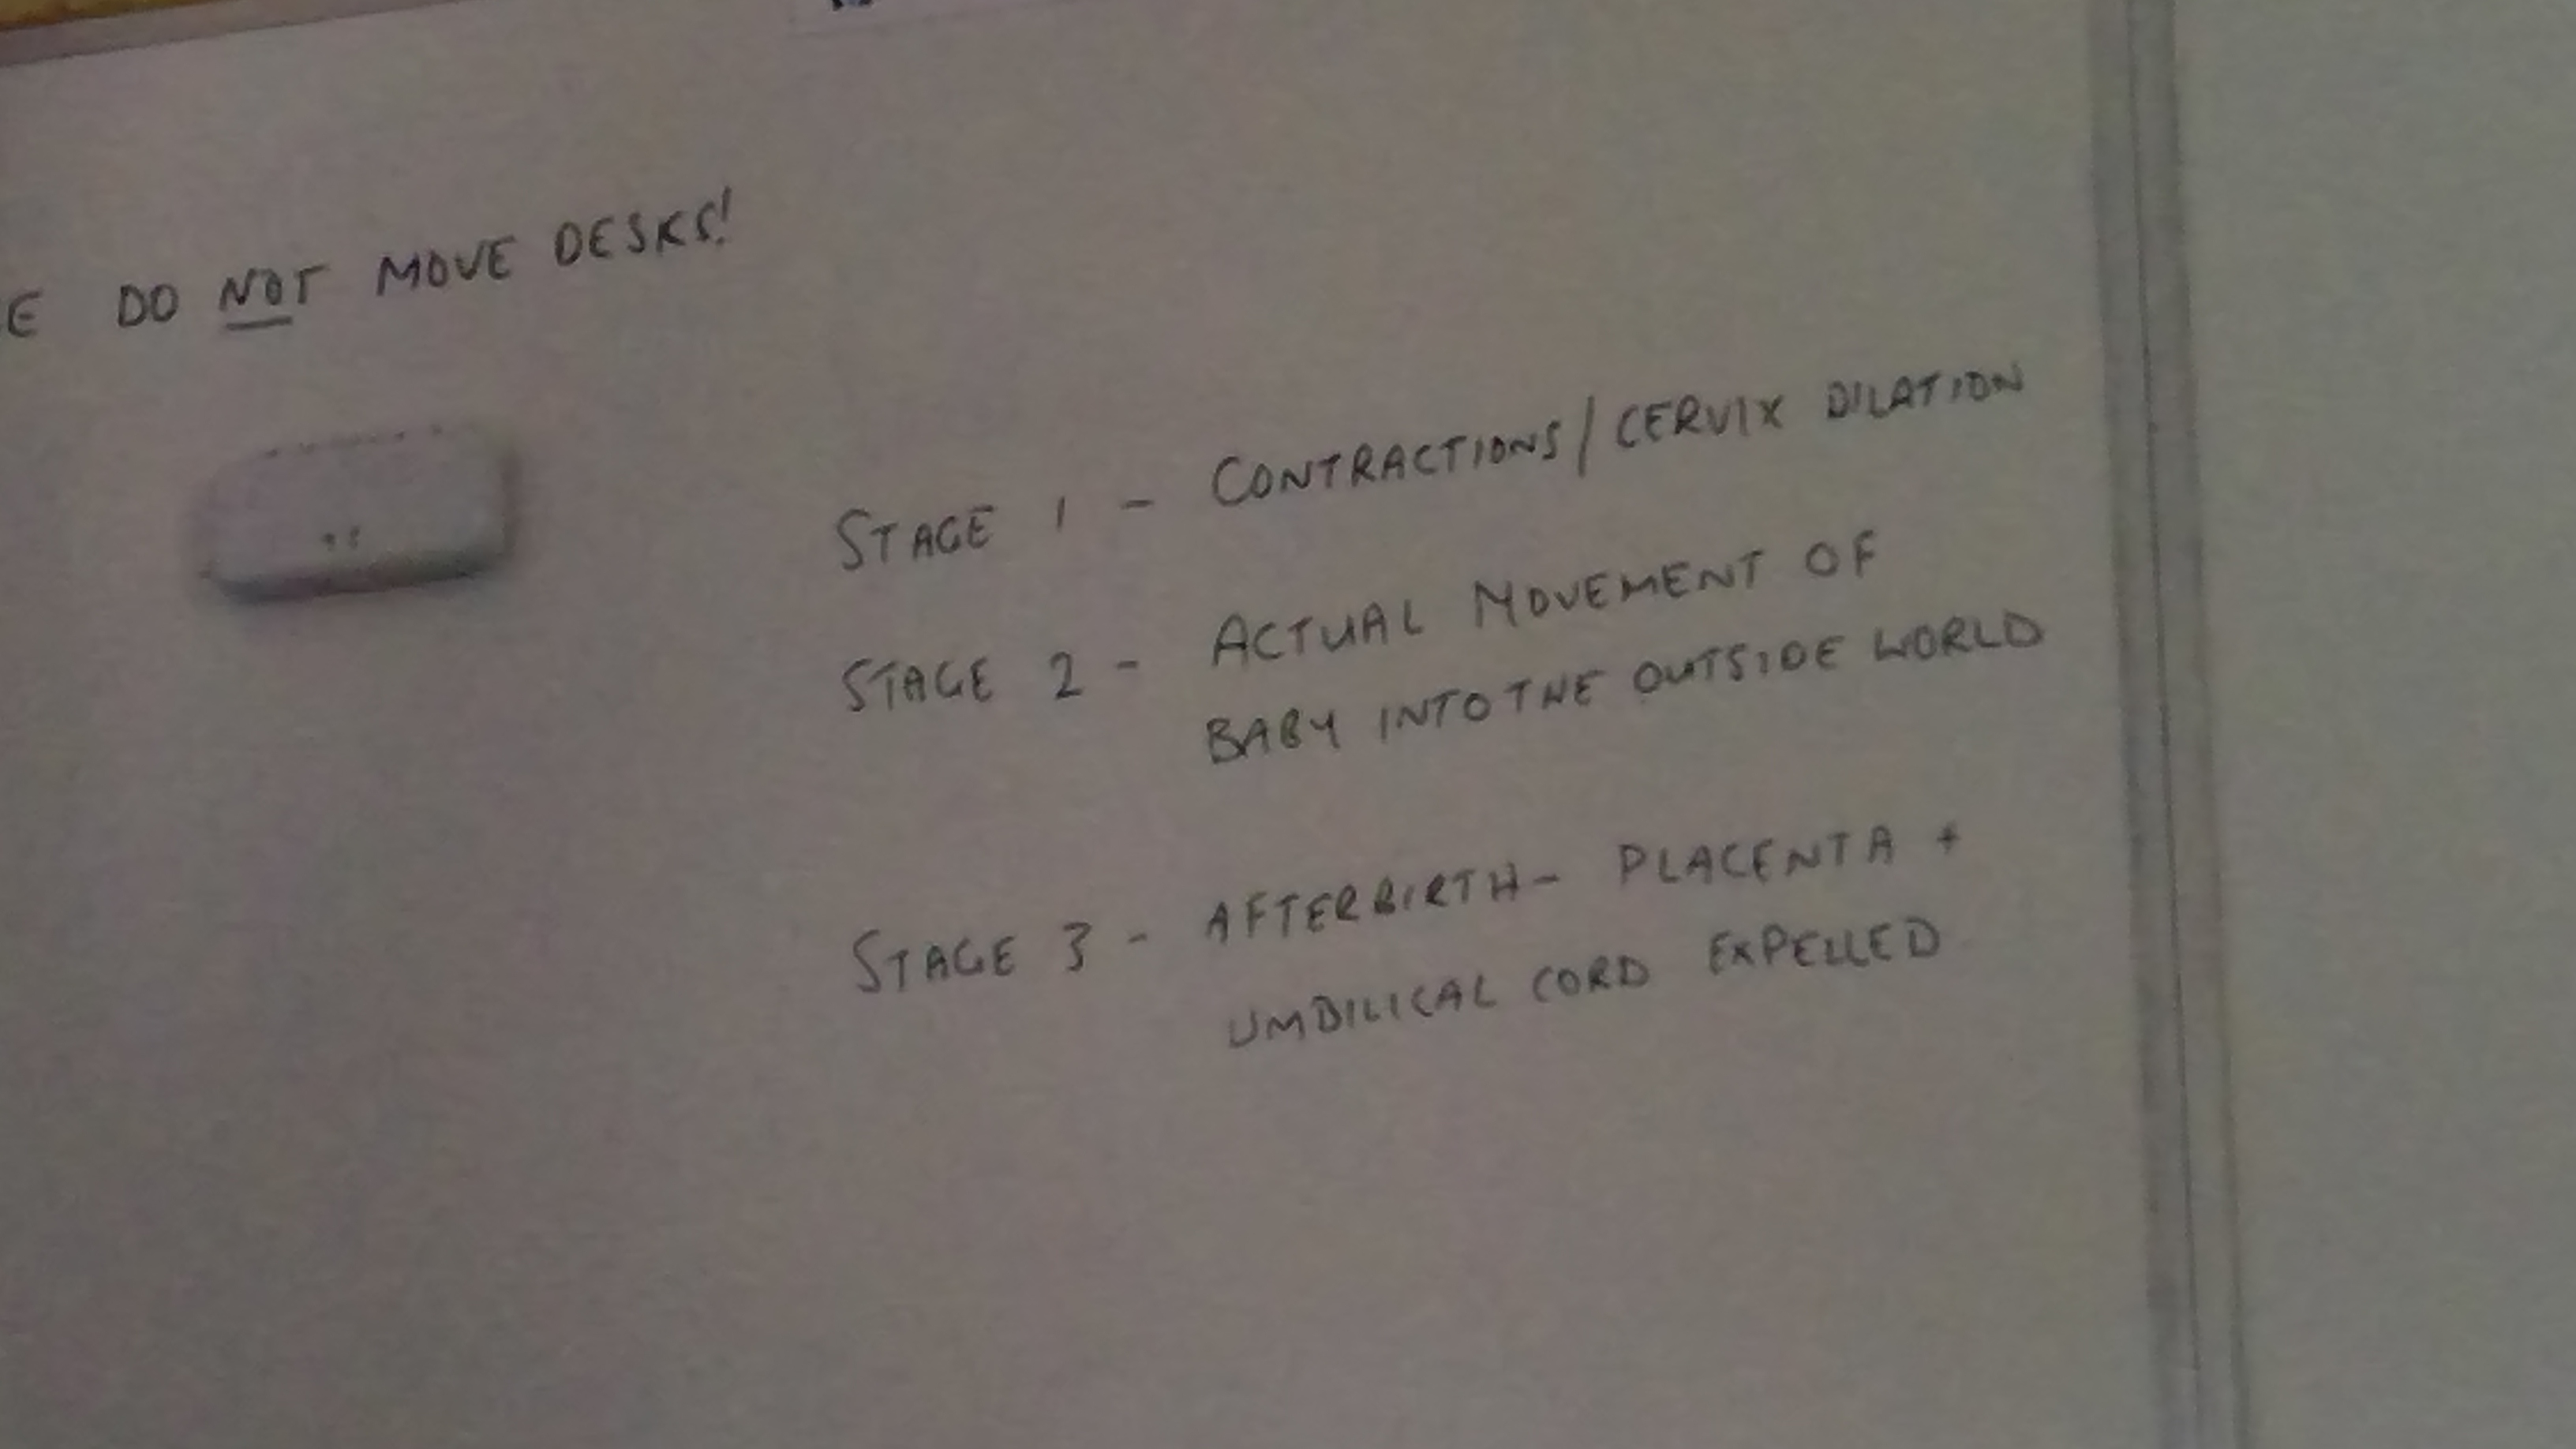 E DO NOT MOVE DESKS!
STAGE 1 - CONTRACTIONS/CERVIX DILATION
STAGE 2 - ACTUAL MOVEMENT OF
BABY INTO THE OUTSIDE WORLD
STAGE 3 - AFTERBIRTH - PLACENTA +
UMBILICAL CORD EXPELLED